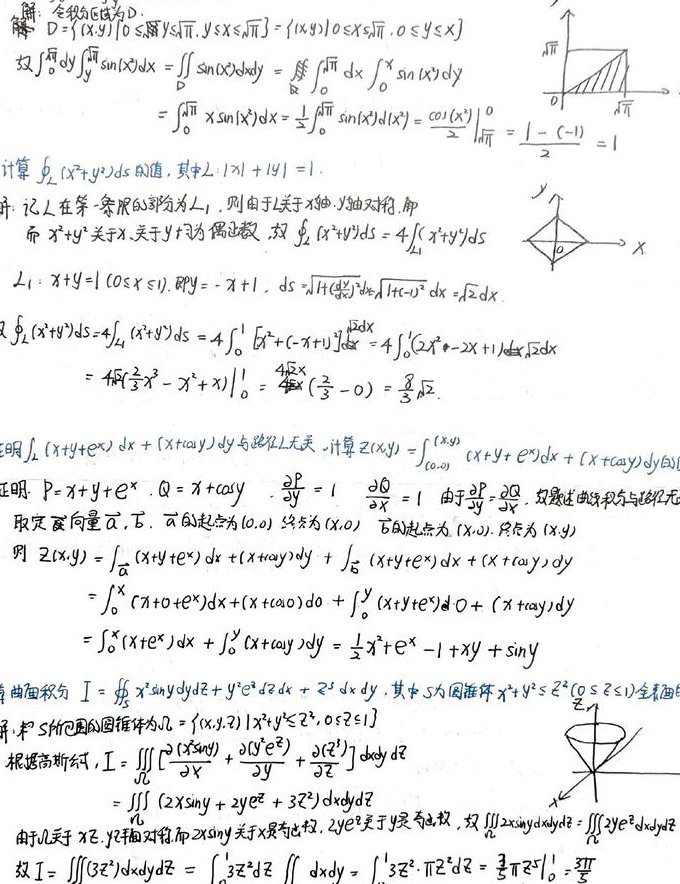 解: 令积分区域为D.
D={(x,y)|0≤y≤√π, y≤x≤√π}={(x,y)|0≤x≤√π, 0≤y≤x}
故∫₀^√π dy∫_y^√π sin(x²)dx = ∬_D sin(x²)dxdy = ∫₀^√π dx ∫₀^x sin(x²)dy
= ∫₀^√π x sin(x²)dx = ½∫₀^√π sin(x²)d(x²) = cos(x²)/2 |_√π^0 = (1-(-1))/2 = 1
√π
0
√π
计算 ∮_L (x²+y²)ds 的值, 其中L: |x|+|y|=1.
解: 记L在第一象限的部分为L₁, 则由于L关于x轴.y轴对称,
而 x²+y² 关于x,关于y均为偶函数, 故 ∮_L (x²+y²)ds = 4∫_L₁(x²+y²)ds
y
x
0
L₁: x+y=1 (0≤x≤1). 即y=-x+1, ds=√(1+(dy/dx)²)dx=√(1+(-1)²) dx=√2dx.
故∮_L(x²+y²)ds=4∫_L₁(x²+y²)ds = 4∫₀¹[x²+(-x+1)²]√2dx = 4∫₀¹(2x²-2x+1)√2dx
= 4√2(⅔x³-x²+x)|₀¹ = 4√2×(⅔-0) = 8/3 √2.
证明∫_L (x+y+eˣ)dx+(x+cosy)dy与路径L无关, 计算Z(x,y)=∫_(0,0)^(x,y) (x+y+eˣ)dx+(x+cosy)dy的
证明. P=x+y+eˣ. Q=x+cosy. ∂P/∂y=1 ∂Q/∂x=1 由于∂P/∂y=∂Q/∂x, 故题述曲线积分与路径无
取定向量a⃗, b⃗. a⃗的起点为(0,0) 终点为(x,0) b⃗的起点为(x,0). 终点为(x,y)
则 Z(x,y)=∫_a⃗ (x+y+eˣ)dx+(x+cosy)dy + ∫_b⃗ (x+y+eˣ)dx+(x+cosy)dy
= ∫₀^x (x+0+eˣ)dx+(x+cos0)d0 + ∫₀^y (x+y+eˣ)d0+(x+cosy)dy
= ∫₀^x(x+eˣ)dx+∫₀^y(x+cosy)dy = ½x²+eˣ-1+xy+siny
算曲面积分 I=∯_S x²sinydydz+y²e^z dzdx+z³dxdy, 其中S为圆锥体x²+y²≤z²(0≤z≤1)全表面的
解: 称S所围的圆锥体为Ω={(x,y,z)|x²+y²≤z², 0≤z≤1}
根据高斯公式, I=∭_Ω[∂(x²siny)/∂x+∂(y²e^z)/∂y+∂(z³)/∂z]dxdydz
= ∭_Ω(2xsiny+2ye^z+3z²)dxdydz
z
x
由于Ω关于xz,yz平面对称,而2xsiny关于x是奇函数, 2ye^z关于y是奇函数, 故∭_Ω2xsinydxdydz=∭_Ω2ye^zdxdydz
故I=∭(3z²)dxdydz=∫₀¹3z²dz∬dxdy=∫₀¹3z²·πz²dz=3/5πz⁵|₀¹=3π/5